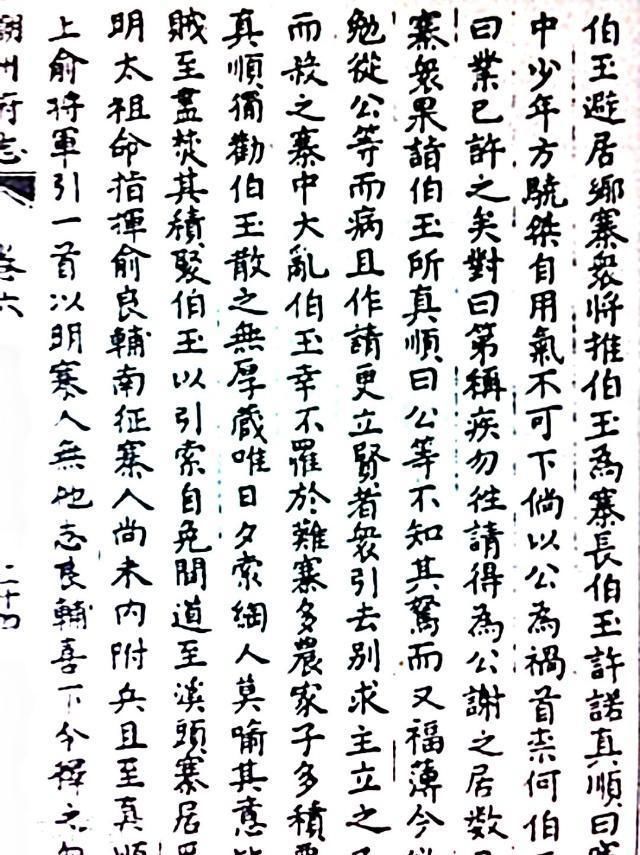 伯玉避居鄉寨衆將推伯玉為寨長伯玉許諾真順曰
中少年方驍桀自用氣不可下倘以公為禍首柰何伯
曰業已許之矣對曰第稱疾勿往請得為公謝之居數
寨衆果詣伯玉所真順曰公等不知其駑而又福薄今
勉從公等而病且作請更立賢者衆引去別求主立之
而殺之寨中大亂伯玉幸不罹於難寨多農家子多積
真順獨勸伯玉散之無厚藏唯日夕索綯人莫喻其意
賊至盡焚其積聚伯玉以引索自免間道至溪頭寨居
明太祖命指揮俞良輔南征寨人尚未內附兵且至真順
上俞將軍引一首以明寨人無他志良輔喜下令釋之
潮州府志 卷六 二十四